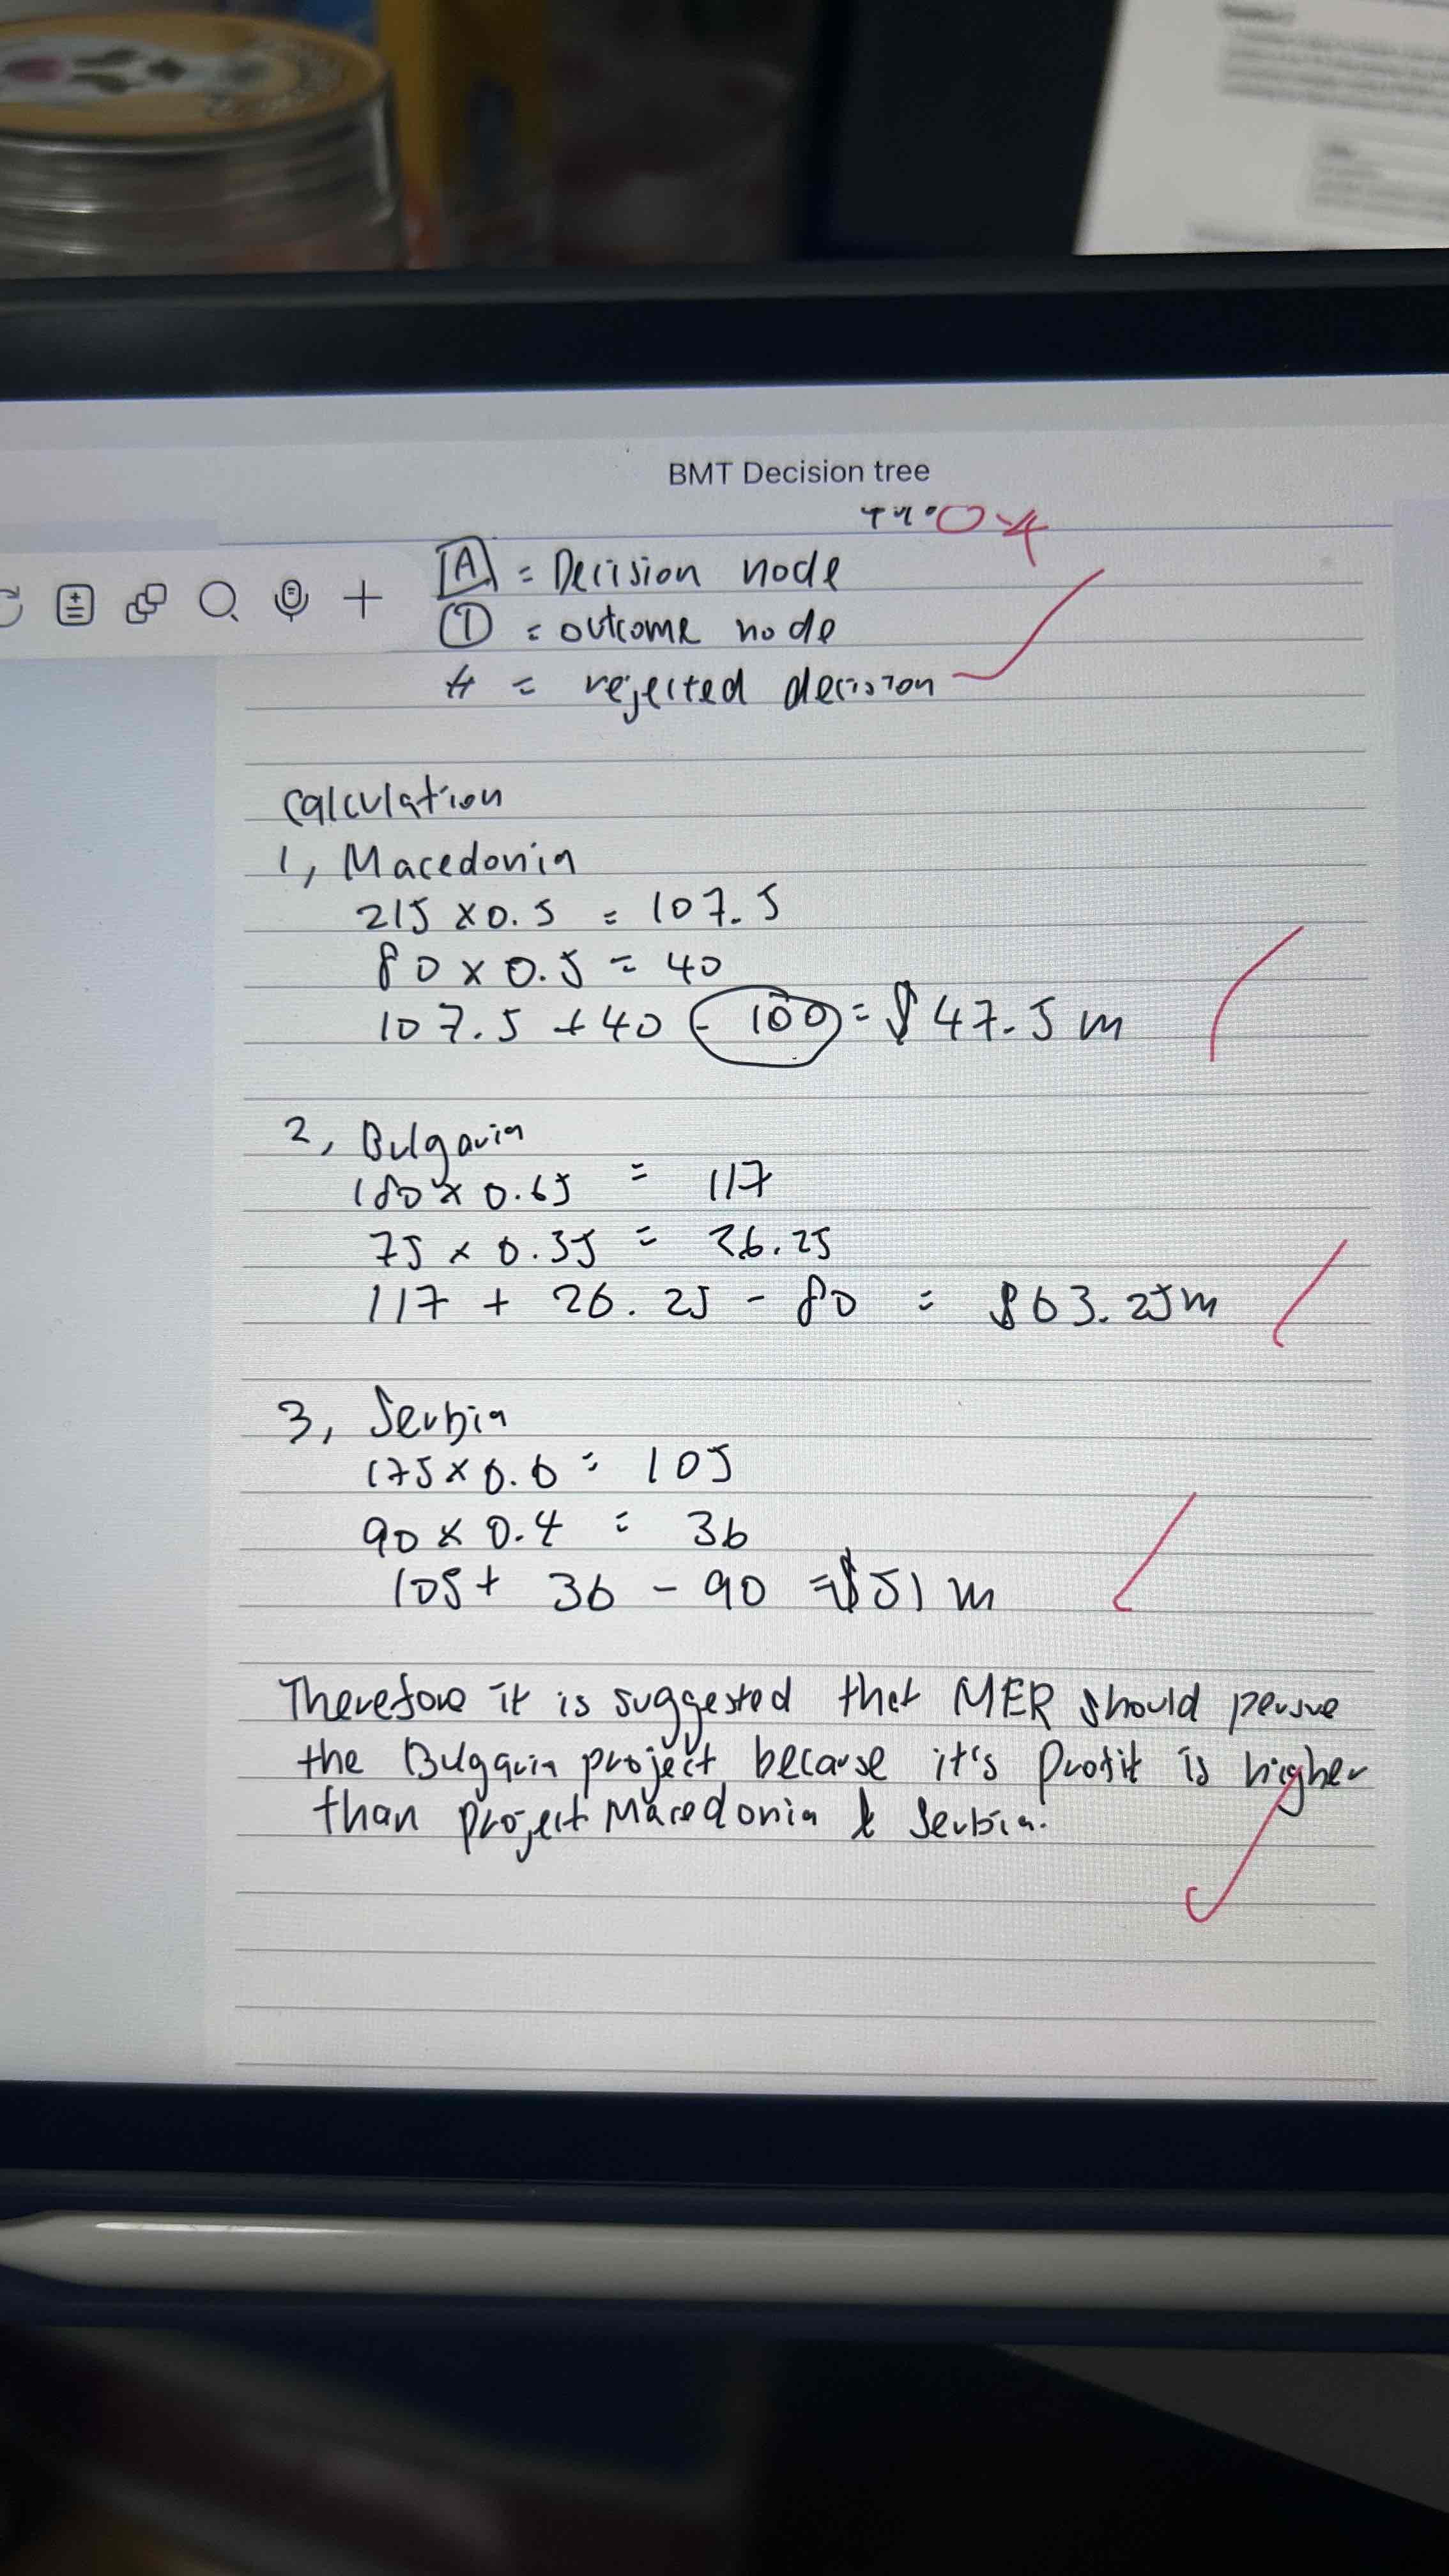 BMT Decision tree
0.4
A = Decision node
1 = outcome node
# = rejected decision
Calculation
1, Macedonia
215 x 0.5 = 107.5
80 x 0.5 = 40
107.5 + 40 - 100 = $47.5 m
2, Bulgaria
180 x 0.65 = 117
75 x 0.35 = 26.25
117 + 26.25 - 80 = $63.25m
3, Serbia
175 x 0.6 = 105
90 x 0.4 = 36
105 + 36 - 90 = $51 m
Therefore it is suggested that MER should persue
the Bulgaria project because it's profit is higher
than project Macedonia & Serbia.